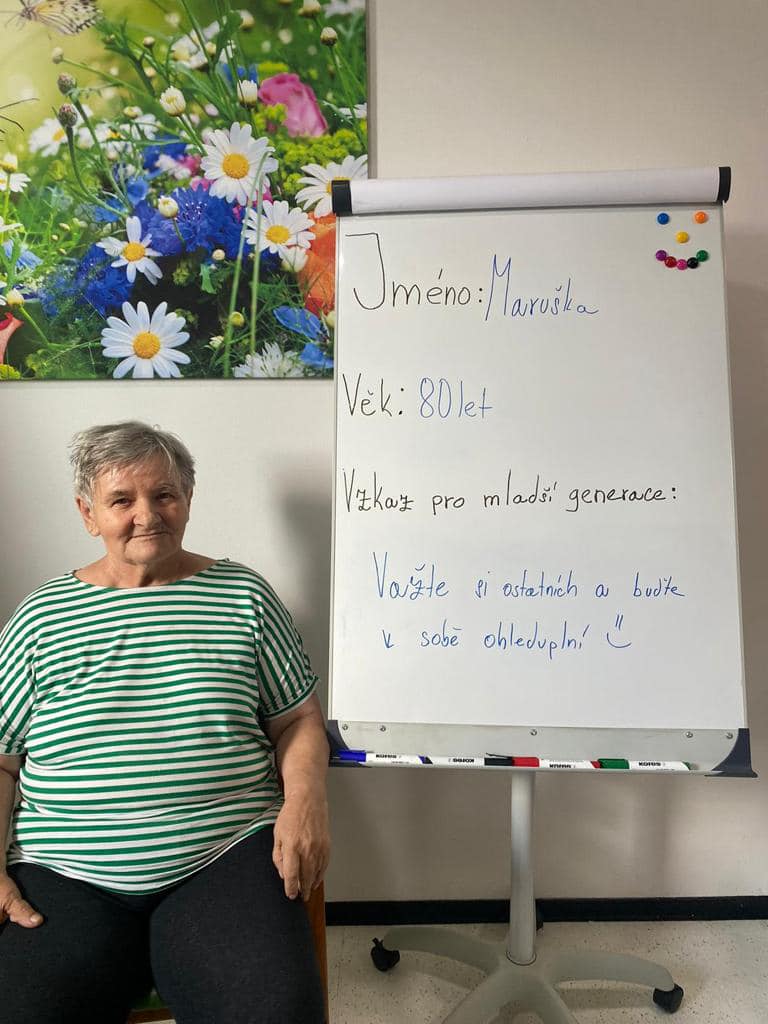 Jméno: Maruška
Věk: 80 let
Vzkaz pro mladší generace:
Važte si ostatních a buďte
k sobě ohleduplní
KORES
KORES
KORES
KORES